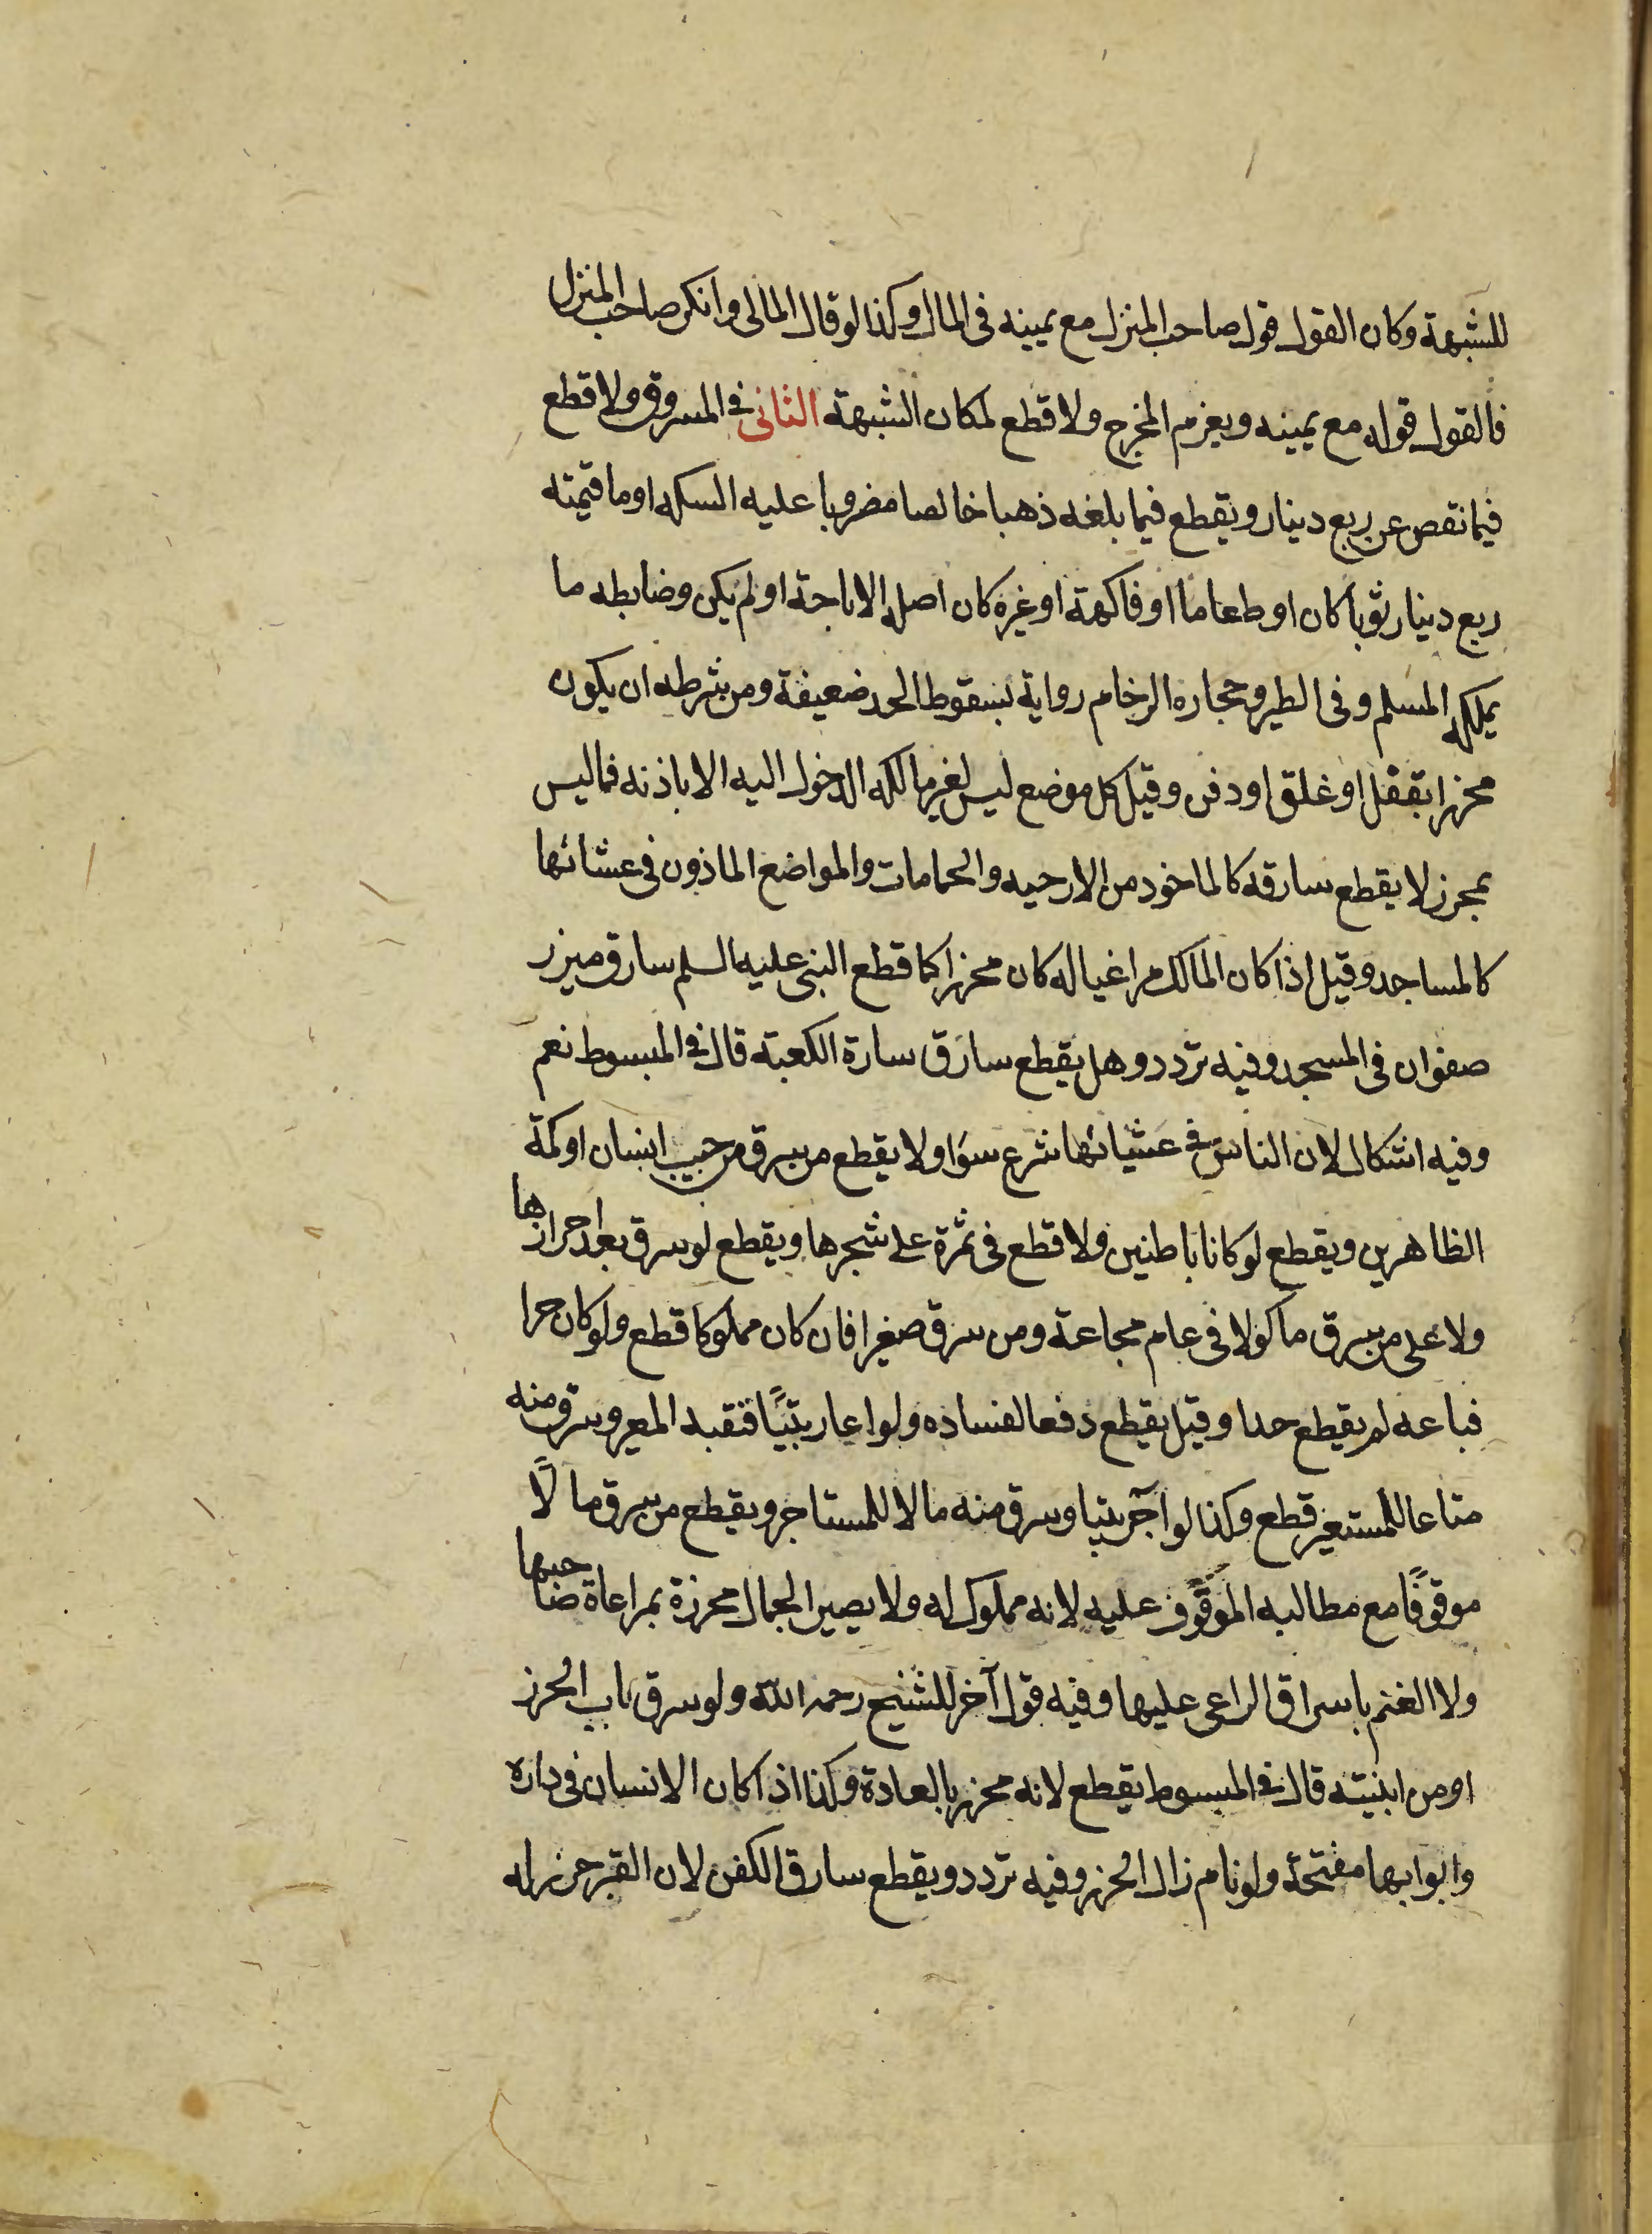 للشبهة وكان القول قول صاحب المنزل مع يمينه فى المال وكذا لو قال المال لى وانكر صاحب المنزل
فالقول قوله مع يمينه ويغرم المخرج ولا قطع لمكان الشبهة الثانى فى المسروق ولا قطع
فيما نقص عن ربع دينار ويقطع فيما بلغه ذهبا خالصا مضروبا عليه السكه او ما قيمته
ربع دينار ثوبا كان او طعاما او فاكهة او غيره كان اصله الاباحة او لم يكن وضابطه ما
يملكه المسلم وفى الطير وحجاره الرخام رواية بسقوط الحد ضعيفة ومن شرطه ان يكون
محرزا بقفل او غلق او دفن وقيل كل موضع ليس لغير مالكه الدخول اليه الا باذنه فما ليس
بمحرز لا يقطع سارقه كالماخود من الارحيه والحمامات والمواضع الماذون فى عشائها
كالمساجد وقيل اذا كان المالك مراعيا له كان محرزا كما قطع النبى عليه السلم سارق ميزر
صفوان فى المسجد وفيه تردد وهل يقطع سارق سارة الكعبة قال فى المبسوط نعم
وفيه اشكال لان الناس فى عشيانها شرع سوا ولا يقطع من سرق من جيب انسان او كمة
الظاهرين ويقطع لو كانا باطنين ولا قطع فى ثمرة على شجرها ويقطع لو سرق بعد احرازها
ولا على من سرق ماكولا فى عام مجاعة ومن سرق صغيرا فان كان مملوكا قطع ولو كان حرا
فباعه لم يقطع حدا وقيل يقطع دفعا لفساده ولو اعار بيتًا فنقبه المعير وسرق منه
متاعا للمستعير قطع وكذا لو آجر بيتا وسرق منه مالا للمستاجر ويقطع من سرق مالًا
موقوفًا مع مطالبه الموقوف عليه لانه مملوك له ولا يصير الجمال محرزة بمراعاة صاحبها
ولا الغنم باسراق الراعى عليها وفيه قول آخر للشيخ رحمه الله ولو سرق باب الحرز
او من ابنيته قال فى المبسوط يقطع لانه محرز بالعادة وكذا اذا كان الانسان فى داره
وابوابها مفتحة ولو نام زال الحرز وفيه تردد ويقطع سارق الكفن لان القبر حرز له